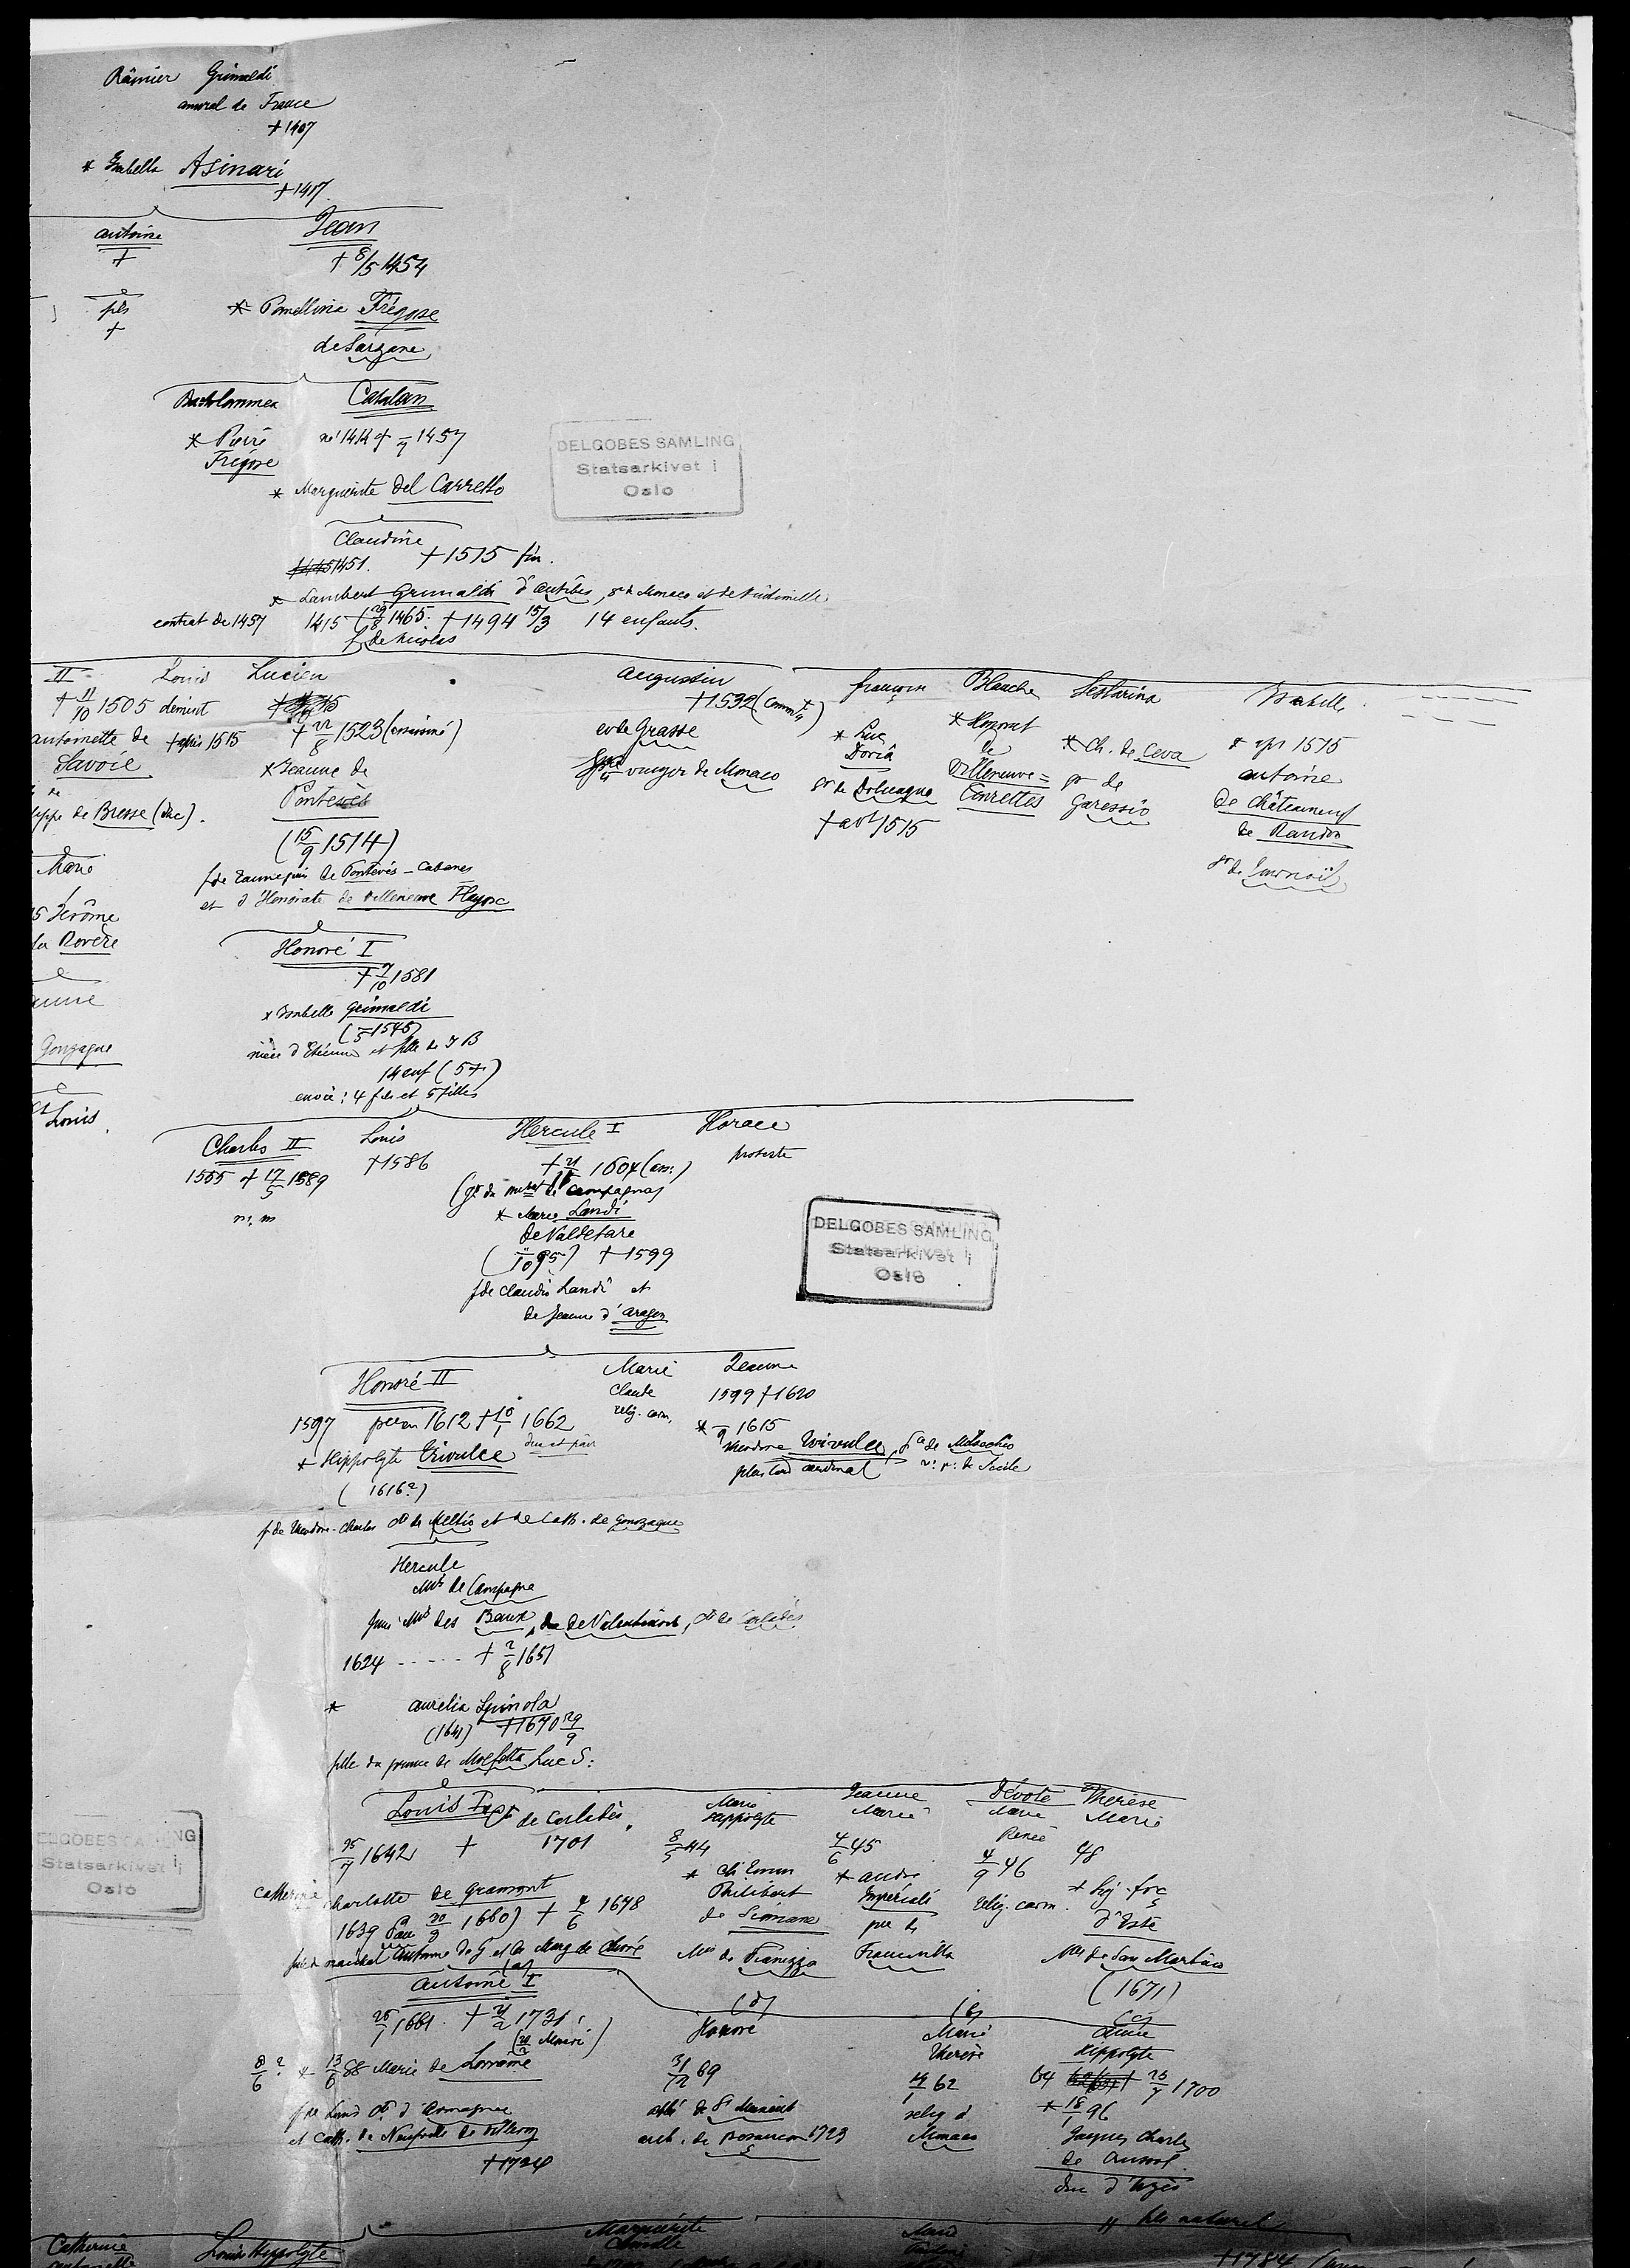 Rainier Grimaldi
amiral de France
+ 1407
* Isabella Asinari
+ 1417
antoine
+
Jean
+ 8/5 1454
fils
+
* Pomellina Frégose
de Sarzane
Bartolommea
* Pierre
Frégose
Catalan
né 1414 + 7 1457
* Marguerite del Carretto
DELGOBES SAMLING
Statsarkivet i
Oslo
Claudine
1451. + 1515 fin.
* Lambert Grimaldi d'antibes, sr de Monaco et de Vintimille
contrat de 1457 1415 (29/8 1465. + 1494 15/3 14 enfants.
f. de Nicolas
II
+ 11/10 1505
antoinette de
Savoie
de Bresse (duc).
Marie
Jérôme
la Rovère
Gonzague
Louis
Louis
dément
+ après 1515
Lucien
+ 22/8 1523 (assassiné)
* Jeanne de
Pontevès
(15/9 1514)
f de Tannequin de Pontevès - Cabanes
et d'Honorate de Villeneuve Flayosc
augustin
+ 1532
ev de Grasse
de Monaco
françoise
* Luc
Doria
sr de Dolceaqua
+ avt 1515
Blanche
* Honorat
de
Villeneuve =
Tourettes
* Ch. de Ceva
sr de
Garessio
Isabelle
* apr 1515
antoine
de Châteauneuf
de Randon
sr de Tournoël
Honoré I
+ 7/10 1581
* Isabelle Grimaldi
(5 1545)
nièce d'Etienne et fille de J B
14 enf (5 +)
encore: 4 fils et 5 filles
Charles II
1555 + 17/5 1589
n. m
Louis
+ 1586
Hercule I
+ 21/11 1604 (ass.)
de Campagna)
* Marie Landi
de Valdetare
(10 95) + 1599
f de Claudio Landi et
de Jeanne d'aragon
Horace
DELGOBES SAMLING
Statsarkivet i
Oslo
Honoré II
1597 pce en 1612 + 10/1 1662
duc et pair
* Hippolyte Trivulce
(1616?)
f de Theodore-Charles cte de Meltio et de Cath. de Gonzague
Marie
Claude
relig. carm.
Jeanne
1599 + 1620
* 9 1615
Theodore Trivulce, pce de Misocchio
plus tard cardinal v. r. de Sicile
Hercule
Mis de Campagna
puis Mis des Baux, duc de Valentinois, cte de Carladès
1624 ..... + 2/8 1651
* aurelia Spinola
(1641) + 1670 29/9
fille du prince de Molfetta Luc S:
DELGOBES SAMLING
Statsarkivet i
Oslo
Louis I cte de Carladès
25/7 1642 + 1701
Catherine
Charlotte de Gramont
1639 Pau 30/3 1660) + 4/6 1678
antoine de G et de Marg de Chivré
Marie
Hippolyte
8/5 44
* Ch Emm
Philibert
de Simiane
Mis de Pianezza
Jeanne
Marie
4/6 45
* andré
Impériali
pce de
Francavilla
Dévote
Marie
Renée
4/9 46
relig. carm.
Thérèse
Marie
48
* Sig. frç
d'Este
Mis de San Martino
(1671)
(a)
antoine I
25/1 1661 + 21/2 1731
(20/2 Moréri)
8/6 ? * 13/6 88 Marie de Lorraine
f de Louis cte d'armagnac
et cath. de Neufville de Villeroy
+ 1724
(d)
Honoré
31/12 69
arch. de Besançon 1723
(b)
Marie
Thérèse
14/1 62
relig à
Monaco
(c)
anne
Hippolyte
64 23/7 1700
* 18/1 96
Jacques Charles
de Crussol
duc d'Uzès
fils naturel
+ 1784
Catherine
Louise Hippolyte
Marguerite
Camille